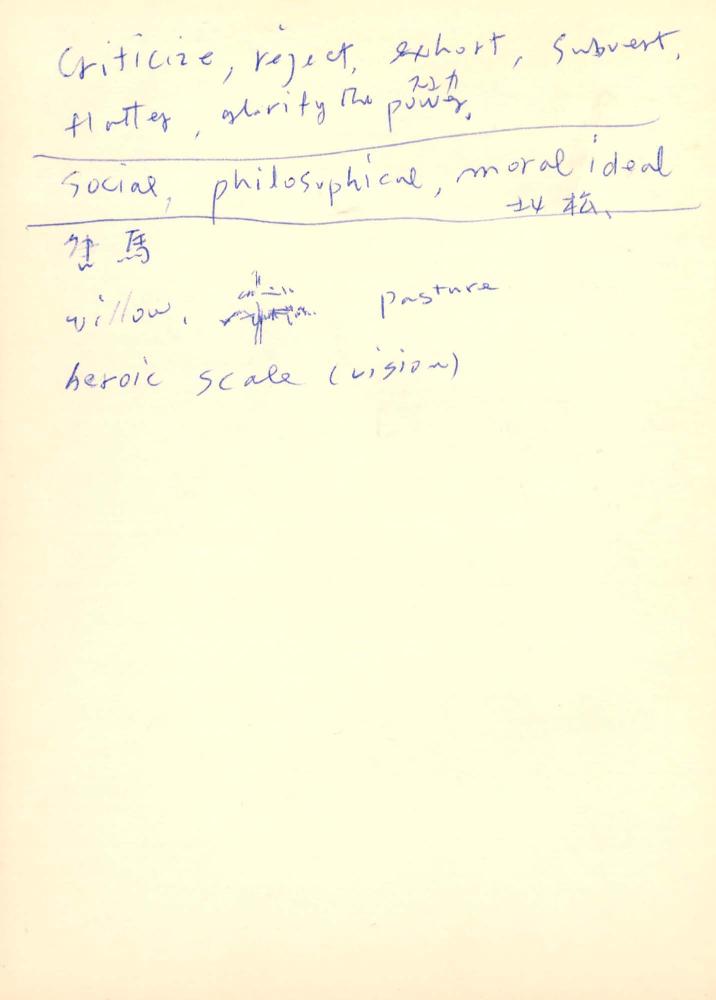 Criticize, reject, exhort, subvert,
flatter, glorify the power,
social, philosophical, moral ideal
松、
馬
willow, pasture
heroic scale (vision)